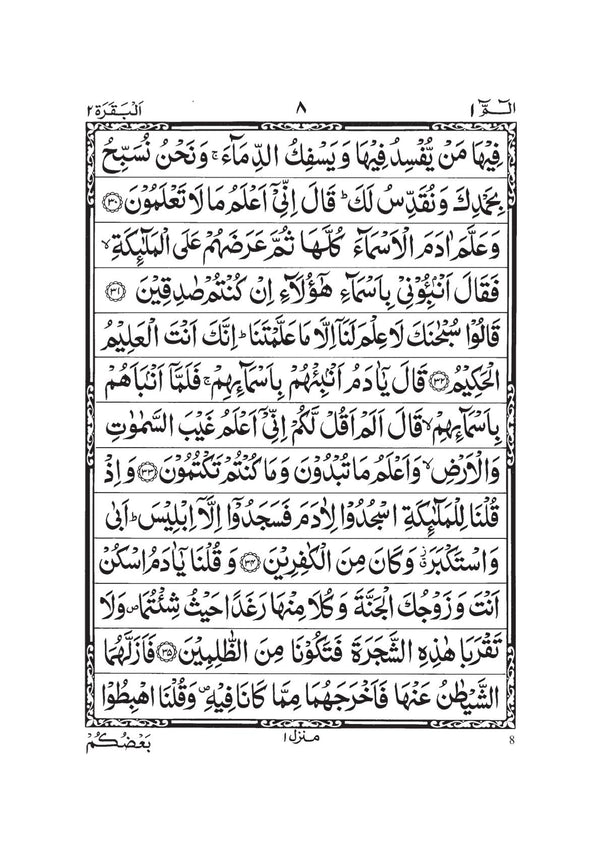 الٓمّٓ ١ ٨ اَلْبَقَرَة ٢
فِيْهَا مَنْ يُّفْسِدُ فِيْهَا وَيَسْفِكُ الدِّمَآءَ ۚ وَنَحْنُ نُسَبِّحُ
بِحَمْدِكَ وَنُقَدِّسُ لَكَ ؕ قَالَ اِنِّيْٓ اَعْلَمُ مَا لَا تَعْلَمُوْنَ ﴿۳۰﴾
وَعَلَّمَ اٰدَمَ الْاَسْمَآءَ كُلَّهَا ثُمَّ عَرَضَهُمْ عَلَى الْمَلٰٓئِكَةِ ۙ
فَقَالَ اَنْۢبِـُٔوْنِيْ بِاَسْمَآءِ هٰٓؤُلَآءِ اِنْ كُنْتُمْ صٰدِقِيْنَ ﴿۳۱﴾
قَالُوْا سُبْحٰنَكَ لَا عِلْمَ لَنَآ اِلَّا مَا عَلَّمْتَنَا ؕ اِنَّكَ اَنْتَ الْعَلِيْمُ
الْحَكِيْمُ ﴿۳۲﴾ قَالَ يٰٓاٰدَمُ اَنْۢبِئْهُمْ بِاَسْمَآئِهِمْ ۚ فَلَمَّآ اَنْۢبَاَهُمْ
بِاَسْمَآئِهِمْ ۙ قَالَ اَلَمْ اَقُلْ لَّكُمْ اِنِّيْٓ اَعْلَمُ غَيْبَ السَّمٰوٰتِ
وَالْاَرْضِ ۙ وَاَعْلَمُ مَا تُبْدُوْنَ وَمَا كُنْتُمْ تَكْتُمُوْنَ ﴿۳۳﴾ وَاِذْ
قُلْنَا لِلْمَلٰٓئِكَةِ اسْجُدُوْا لِاٰدَمَ فَسَجَدُوْٓا اِلَّآ اِبْلِيْسَ ؕ اَبٰى
وَاسْتَكْبَرَ ۗ وَكَانَ مِنَ الْكٰفِرِيْنَ ﴿۳۴﴾ وَقُلْنَا يٰٓاٰدَمُ اسْكُنْ
اَنْتَ وَزَوْجُكَ الْجَنَّةَ وَكُلَا مِنْهَا رَغَدًا حَيْثُ شِئْتُمَا ۪ وَلَا
تَقْرَبَا هٰذِهِ الشَّجَرَةَ فَتَكُوْنَا مِنَ الظّٰلِمِيْنَ ﴿۳۵﴾ فَاَزَلَّهُمَا
الشَّيْطٰنُ عَنْهَا فَاَخْرَجَهُمَا مِمَّا كَانَا فِيْهِ ۪ وَقُلْنَا اهْبِطُوْا
بَعْضُكُمْ منزل ١ 8